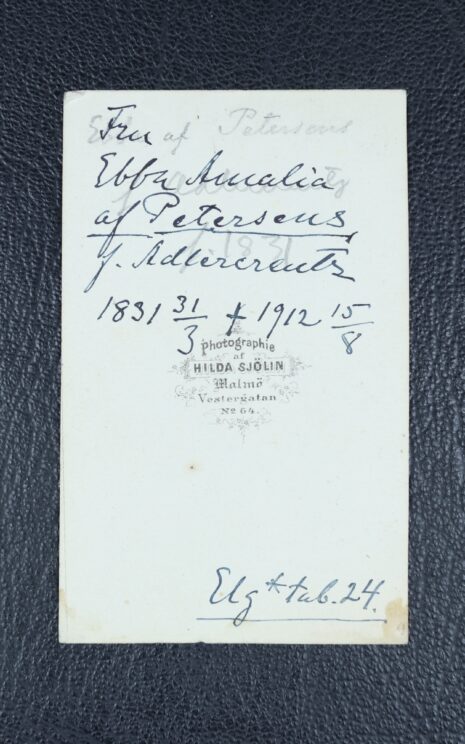 Fru
Ebba af Petersens
Ebba Amalia
af Petersens
f. Adlercreutz
f. 1831
1831 31/3 † 1912 15/8
Photographie
af
HILDA SJÖLIN
Malmö
Vestergatan
No 64.
Elg * tab. 24.